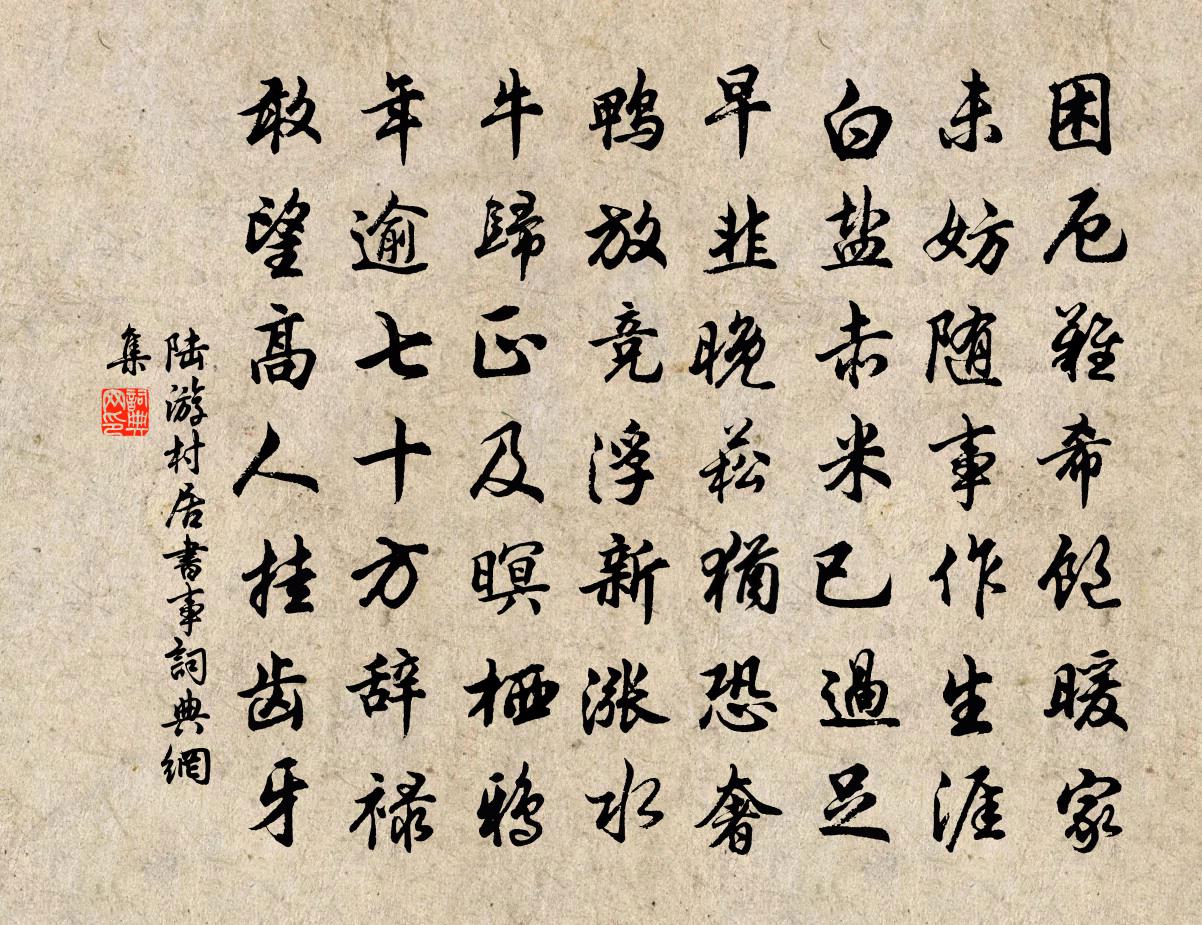 困厄難希飽暖家
未妨随事作生涯
白盐赤米已過足
早韭晚菘猶恐奢
鴨放竞浮新漲水
牛歸正及暝栖鴉
年逾七十方辞禄
敢望高人挂齿牙
陆游村居書事詞典網
集
詞典
网印